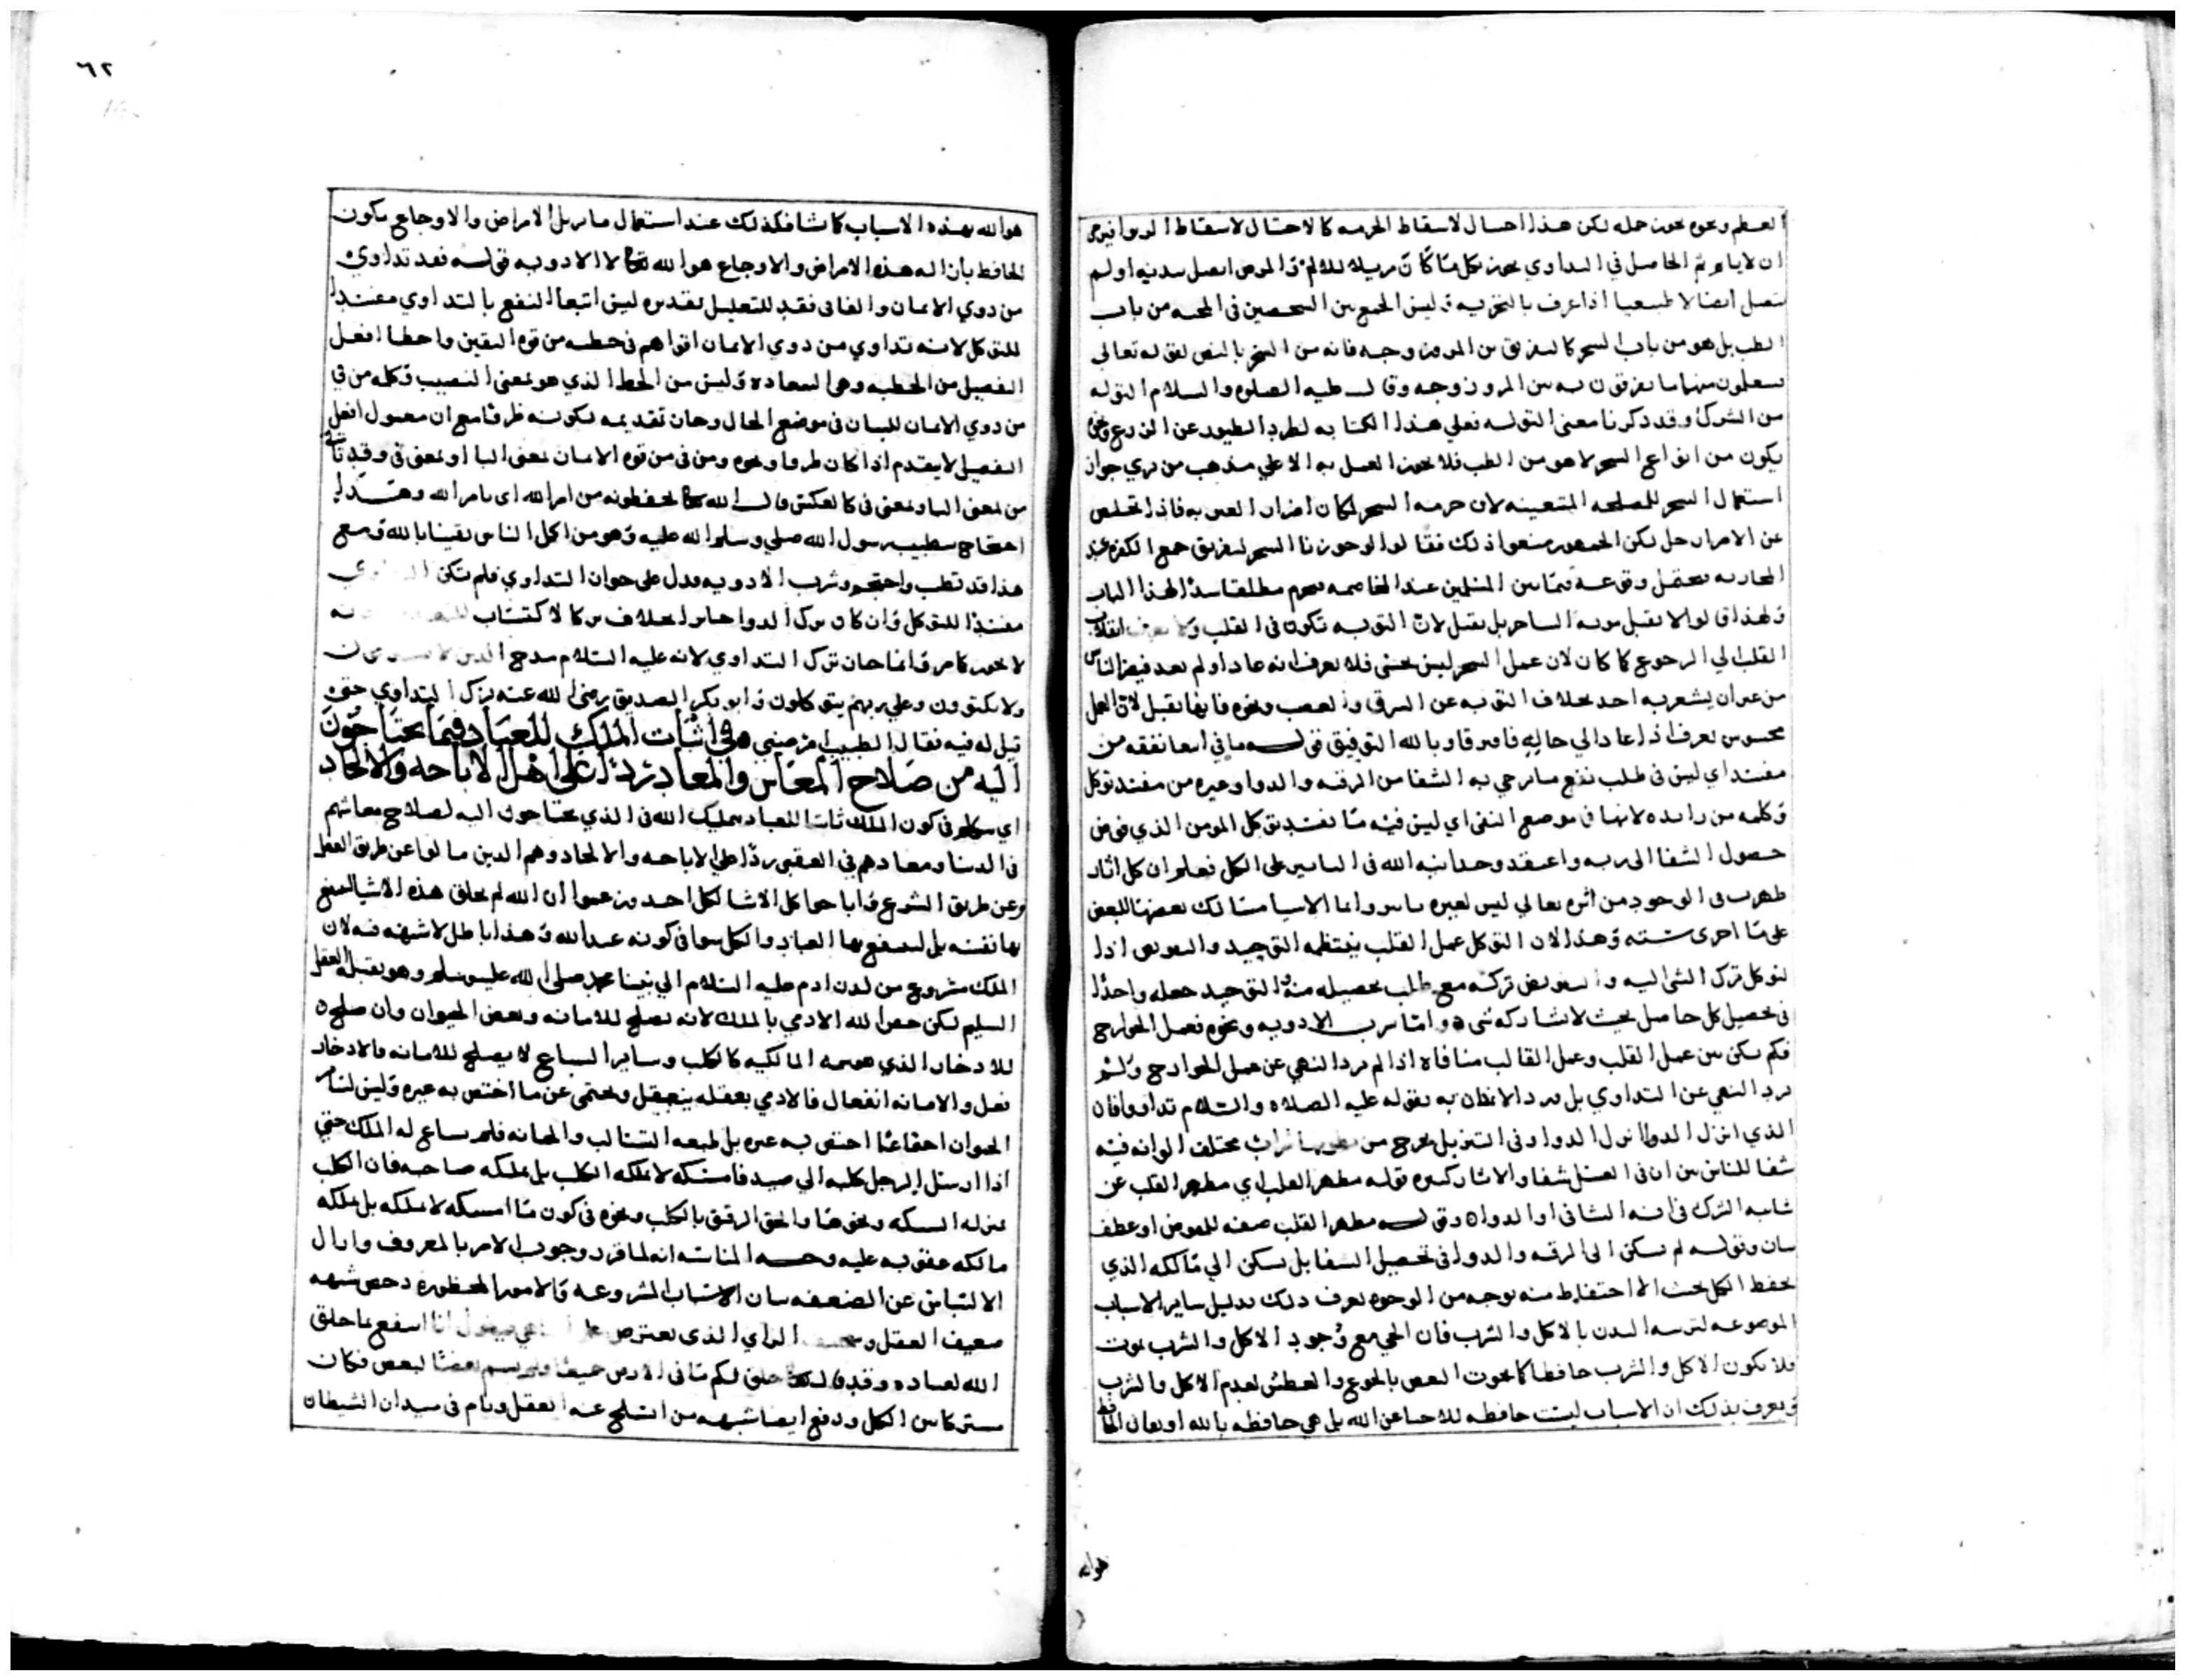 العظم ونحوه يجوز حمله لكن هذا احتيال لاسقاط الحرمه كالاحتيال لاسقاط الربوا فيرجى
ان لا ياثم ثم الحاصل في التداوي يجوز بكل ما كان مزيلا للالم والمرض اتصل ببدنه او لم
يتصل اتصالا طبيعيا اذا عرف بالتجربه وليس الجمع بين الشخصين في المحبه من باب
الطب بل هو من باب السحر كالتفريق بين المرء وزوجه فانه من السحر بالنص لقوله تعالى
فيتعلمون منهما ما يفرقون به بين المرء وزوجه وقال عليه الصلوه والسلام التوله
من الشرك وقد ذكرنا معنى التوله فعلي هذا الكتابه لطرد الطيور عن الزرع ونحوه
يكون من انواع السحر لا هو من الطب فلا يجوز العمل به الا علي مذهب من يري جواز
استعمال السحر للمصلحه المتعينه لان حرمه السحر لمكان اضرار الغير به فاذا تخلص
عن الاضرار حل لكن الجمهور منعوا ذلك فقالوا لو جوزنا السحر لتفريق جمع الكفره عند
المحاربه يحتمل وقوعه فيما بين المسلمين عند المخاصمه فيحرم مطلقا سدا لهذا الباب
ولهذا قالوا لا يقبل توبه الساحر بل يقتل لان التوبه تكون في القلب ولا يعرف انقلاب
القلب الي الرجوع كما كان لان عمل السحر ليس بحسي فلا يعرف انه عاد او لم يعد فيضر الناس
من غير ان يشعر به احد بخلاف التوبه عن السرقه والغصب ونحوه فانها تقبل لان العمل
محسوس يعرف اذا عاد الي حاله فافترقا وبالله التوفيق قوله ما في ابتغا نفعه من
مفسد اي ليس في طلب نفع ما يرجي به الشفا من الرقيه والدوا وغيره من مفسد توكل
وكلمه من زايده لانها في موضع النفي اي ليس فيه ما يفسد توكل المومن الذي فوض
حصول الشفا الى ربه واعتقد وحدانيه الله في التاثير على الكل فيعلم ان كل اثار
ظهرت في الوجود من اثره تعالي ليس لغيره تاثير وانما الاسباب بعضها للبعض
على ما اجرى سنته وهذا لان التوكل عمل القلب ينتظمه التوحيد والتفويض اذا
التوكل ترك الشي اليه والتفويض تركه مع طلب تحصيله منه والتوحيد جعله واحدا
في تحصيل كل حاصل بحيث لا يشاركه شي واما شرب الادويه ونحوه فعمل الجوارح
فلم يكن بين عمل القلب وعمل القالب منافاه اذا لم يرد النهي عن عمل الجوارح ولم
يرد النهي عن التداوي بل ورد به بقوله عليه الصلاه والسلام تداووا فان
الذي انزل الدوا وفي التنزيل يخرج من بطونها شراب مختلف الوانه فيه
شفا للناس بين ان في العسل شفا والاثار كثيره قوله مطهر القلب اي مطهر القلب عن
شايبه الشرك في انه الشافي او الدوا وقوله مطهر القلب صفه للمفوض او عطف
بيان وقوله لم يسكن الى الرقيه والدوا في تحصيل الشفا بل يسكن الي مالكه الذي
يحفظ الكل بحيث لا احتفاظ منه بوجه من الوجوه يعرف ذلك بدليل ساير الاسباب
الموضوعه لتربيه البدن بالاكل والشرب فان الحي مع وجود الاكل والشرب يموت
فلا يكون الاكل والشرب حافظا كما يموت البعض بالجوع والعطش لعدم الاكل والشرب
فيعرف بذلك ان الاسباب ليست حافظه للاحيا عن الله بل هي حافظه بالله او يقال الحافظ
هو الله
٦٢
هو الله بهذه الاسباب كما شا فكذلك عند استعمال ما يزيل الامراض والاوجاع يكون
الحافظ بازاله هذه الامراض والاوجاع هو الله تعالى لا الادويه قوله فقد تداوي
من ذوي الايمان والفا في فقد للتعليل تقديره ليس ابتغا النفع بالتداوي مفسدا
للتوكل لانه تداوي من ذوي الايمان اقواهم في حظه من قوه اليقين واحظا افعل
التفضيل من الحظيه وهي السعاده وليس من الحظ الذي هو بمعنى النصيب وكلمه من في
من ذوي الايمان للبيان في موضع الحال وجاز تقديمه لكونه ظرفا مع ان معمول افعل
التفضيل لا يتقدم اذا كان ظرفا ونحوه ومن في من قوه الايمان بمعنى البا او بمعنى في وقد تاتي
من بمعنى البا وبمعنى في كالعكس قال الله تعالى يحفظونه من امر الله اى بامر الله وهذا
احتجاج بتطبيب رسول الله صلي وسلم الله عليه وهو من اكمل الناس يقينا بالله ومع
هذا قد تطبب واحتجم وشرب الادويه فدل على جواز التداوي فلم يكن التداوي
مفسدا للتوكل وان كان ترك الدوا جايزا بخلاف ترك الاكتساب
لا يجوز كما مر وانما جاز ترك التداوي لانه عليه السلام مدح الذين لا يسترقون
ولا يكتوون وعلي ربهم يتوكلون وابو بكر الصديق رضي الله عنه ترك التداوي حتى
قيل له فيه فقال الطبيب امرضني وفي اثبات الملك للعباد فيما يحتاجون
اليه من صلاح المعاش والمعاد رد علي اهل الاباحه والالحاد
اي في كون الملك ثابتا للعباد بتمليك الله في الذي يحتاجون اليه لصلاح معاشهم
في الدنيا ومعادهم في العقبى ردا على الاباحه والالحاد وهم الذين مالوا عن طريق العقل
وعن طريق الشرع واباحوا كل الاشيا لكل احد وزعموا ان الله لم يخلق هذه الاشيا لينتفع
بها نفسه بل لينتفع بها العباد والكل سوا في كونه عبد الله وهذا باطل لا شبهه فيه لان
الملك مشروع من لدن ادم عليه السلام الي نبينا محمد صلى الله عليه وسلم وهو يقبله العقل
السليم لكن خص الله الادمي بالملك لانه يصلح للامانه وبعض الحيوان وان صلح
للادخار الذي هو سمه المالكيه كالكلب وساير السباع لا يصلح للامانه فالادخار
فعل والامانه انفعال فالادمي بعقله ينعقل ويحتمى عن ما اختص به غيره وليس لساير
الحيوان احتماء عما اختص به غيره بل طبعه التسالب والخيانه فلم يساع له الملك حتي
اذا ارسل الرجل كلبه الي صيد فامسكه لا يملكه الكلب بل يملكه صاحبه فان الكلب
بمنزله الشبكه ونحوها والحق الرقيق بالكلب ونحوه في كون ما امسكه لا يملكه بل يملكه
مالكه عقوبه عليه وجه المناسبه انه لما قرر وجوب الامر بالمعروف وازال
الالتباس عن الضعفه ببيان الاسباب المشروعه والامور المحظوره دحض شبهه
ضعيف العقل وسخيف الراي الذى يعترض على ويقول انا انتفع بما خلق
الله لعباده وقد قال خلق لكم ما في الارض جميعا ولم يسم بعضا لبعض فكان
مشتركا بين الكل ودفع ايضا شبهه من انسلخ عنه العقل وهام في ميدان الشيطان